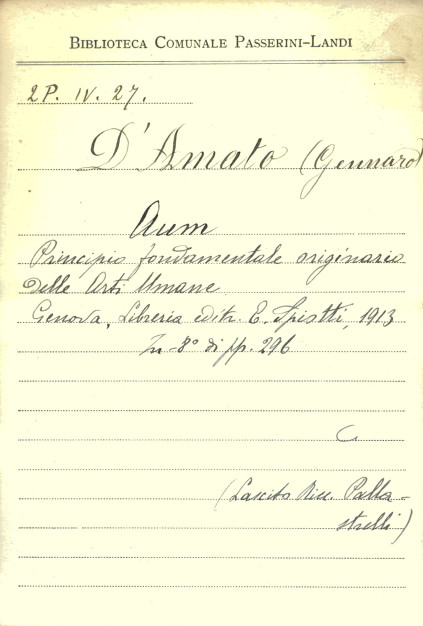 BIBLIOTECA COMUNALE PASSERINI-LANDI
2P. IV. 27.
D'Amato (Gennaro)
Aum
Principio fondamentale originario
delle Arti Umane
Genova, Libreria editr. E. Spiotti, 1913
In-8° di pp. 296
C
(Lascito Picc. Palla-
strelli)